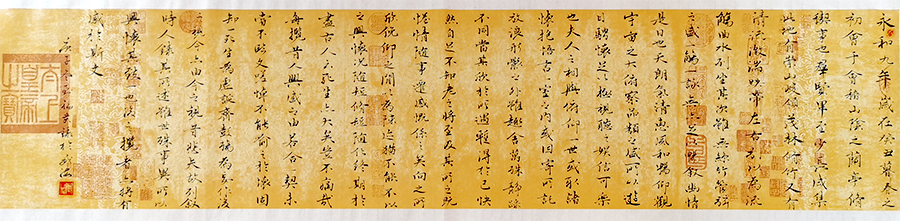 永和九年歲在癸丑暮春之
初會于會稽山陰之蘭亭脩
禊事也群賢畢至少長咸集
此地有崇山峻領茂林脩竹又有
清流激湍映帶左右引以為流
觴曲水列坐其次雖無絲竹管弦
之盛一觴一詠亦足以暢敘幽情
是日也天朗氣清惠風和暢仰觀
宇宙之大俯察品類之盛所以遊
目騁懷足以極視聽之娛信可樂
也夫人之相與俯仰一世或取諸
懷抱悟言一室之內或因寄所託
放浪形骸之外雖趣舍萬殊靜躁
不同當其欣於所遇暫得於己快
然自足不知老之將至及其所之既
惓情隨事遷感慨係之矣向之所
欣俛仰之間以為陳迹猶不能不以
之興懷況脩短隨化終期於
盡古人云死生亦大矣豈不痛哉
每攬昔人興感之由若合一契未
嘗不臨文嗟悼不能喻之於懷固
知一死生為虛誕齊彭殤為妄作後
之視今亦由今之視昔悲夫故列敘
時人錄其所述雖世殊事異所以
興懷其致一也後之攬者亦將有
感於斯文